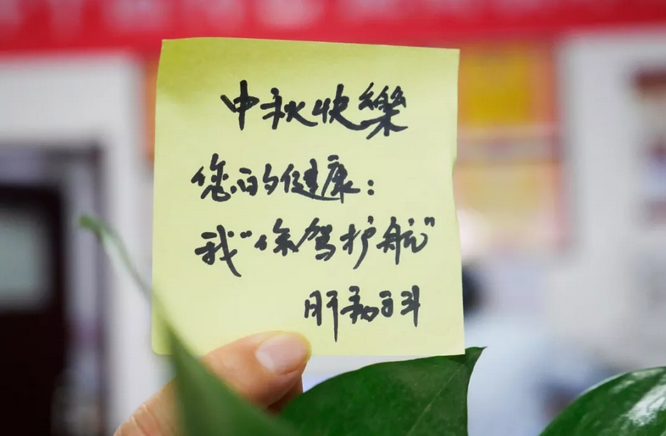 中秋快樂
您的健康:
我“保驾护航”
肝病科